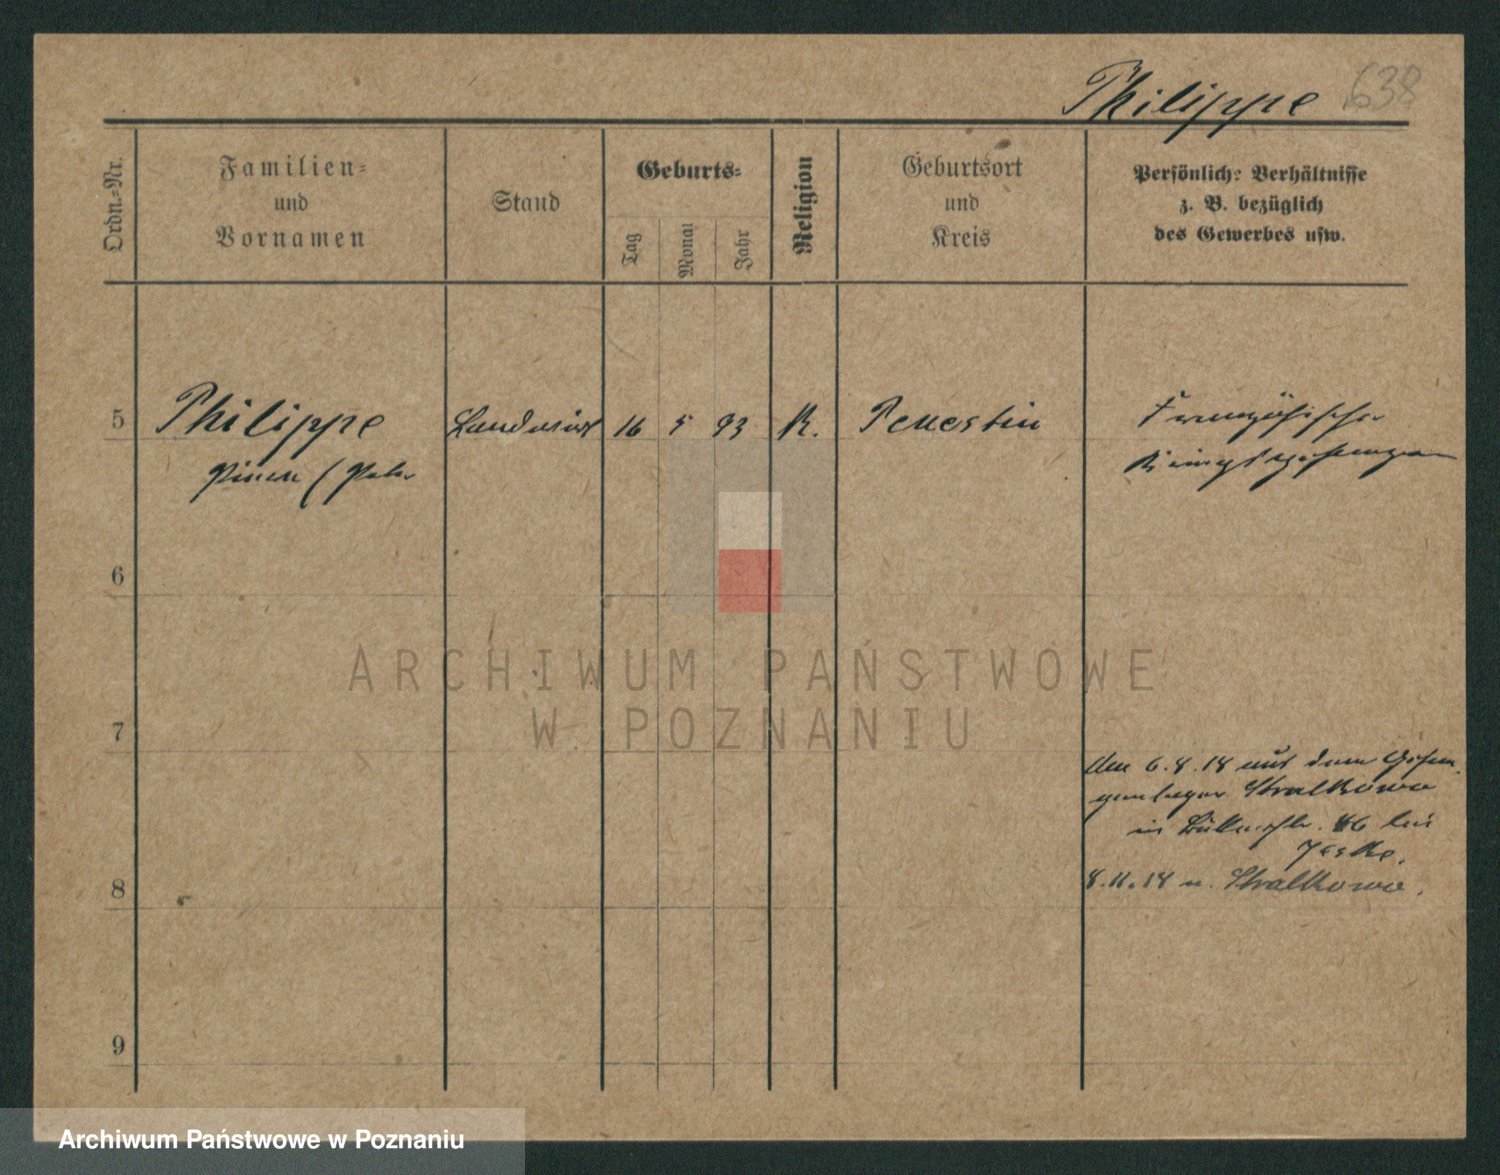 Philippe 638
Ordn.-Nr.
Familien-
und
Vornamen
Stand
Geburts-
Tag
Monat
Jahr
Religion
Geburtsort
und
Kreis
Persönlich: Verhältnisse
z. B. bezüglich
des Gewerbes usw.
5 Philippe Landwirt 16 5 93 K. Penestin Französischer
Kriegsgefangen
6
7
Am 6.8.18 aus dem Gefan-
genlager Stralkowo
in 46 bei
Jeske.
8.11.18 n. Stralkowo.
8
9
ARCHIWUM PAŃSTWOWE
W POZNANIU
Archiwum Państwowe w Poznaniu